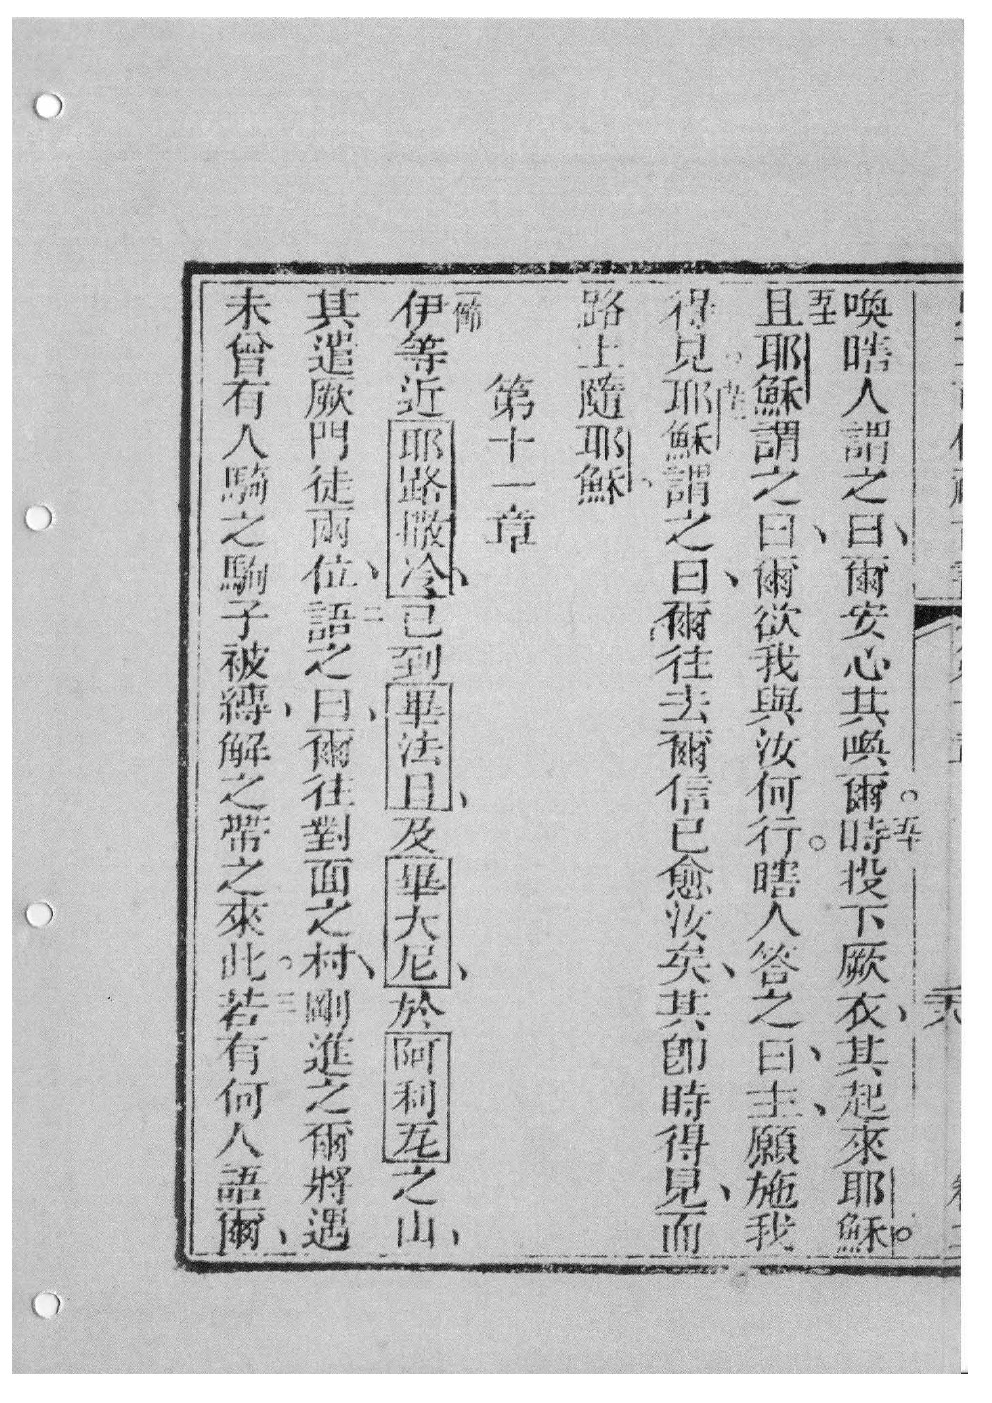 喚瞎人謂之曰、爾安心其喚爾。五十時投下厥衣、其起來耶穌。
五十一且耶穌謂之曰、爾欲我與汝何行。瞎人答之曰、主、願施我
得見。五十二耶穌謂之曰、爾往去爾信已愈汝矣、其卽時得見、而
路上隨耶穌、
第十一章
一節伊等近耶路撒冷、已到畢法且、及畢大尼、於阿利瓦之山、
其遣厥門徒兩位、二語之曰、爾往對面之村、剛進之爾將遇
未曾有人騎之駒子被縳、解之帶之來此。三若有何人語爾、